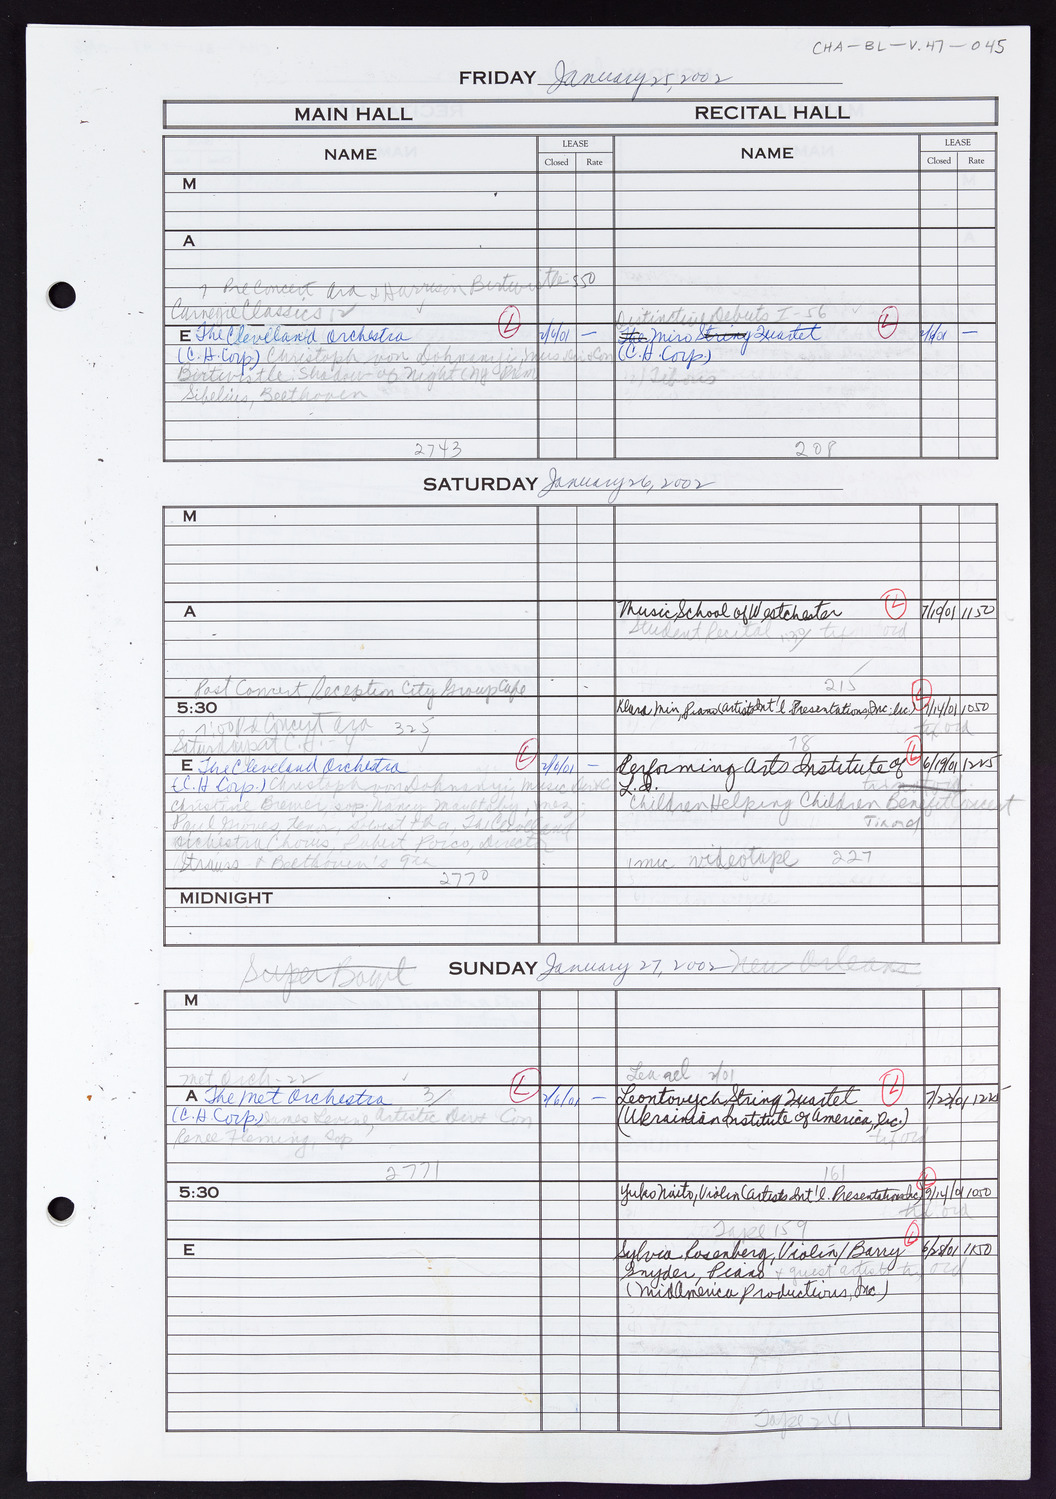 CHA-BL-V.47-045
FRIDAY January 25, 2002
MAIN HALL RECITAL HALL
NAME LEASE Closed Rate NAME LEASE Closed Rate
M
A
Pre Concert Harrison Birtwistle 550
Carnegie Classics Distinctive Debuts I-56
E The Cleveland Orchestra L 2/6/01 — The Miro String Quartet L —
(C.H. Corp.) Christoph von Dohnanyi, Mus Dir Con (C.H. Corp.)
Birtwistle: Shadow of Night (NY Prem
Sibelius, Beethoven
2743 208
SATURDAY January 26, 2002
M
A Music School of Westchester L 7/19/01 1150
Student Recital
215
Post Concert Reception City Group Cafe
5:30 Klara Min, Piano (Artists Int'l. Presentations, Inc.) L 9/14/01 1050
325
Saturdays at C.H.-4 78
E The Cleveland Orchestra L 2/6/01 — Performing Arts Institute of L 6/19/01 1225
(C.H. Corp.) Christoph von Dohnanyi, music dir & C L.I.
Christine Brewer, sop, Nancy Maultsby, mez, Children Helping Children Benefit Concert
Paul Groves, tenor, The Cleveland
Orchestra Chorus, Robert Porco, director
Strauss & Beethoven's 9th 1 mic videotape 227
2770
MIDNIGHT
Super Bowl SUNDAY January 27, 2002 New Orleans
M
Met Orch-22
A The Met Orchestra 3/ L 2/6/01 — Leontovych String Quartet L 7/23/01 1225
(C.H. Corp.) James Levine, Artistic Dir & Con (Ukrainian Institute of America, Inc.)
Renee Fleming, Sop
2771 161
5:30 Yuko Naito, Violin (Artists Int'l. Presentations, Inc.) L 9/14/01 1050
Tape 159
E Sylvia Rosenberg, Violin/Barry L 6/28/01 1150
Snyder, Piano + guest artist
(MidAmerica Productions, Inc.)
Tape 241